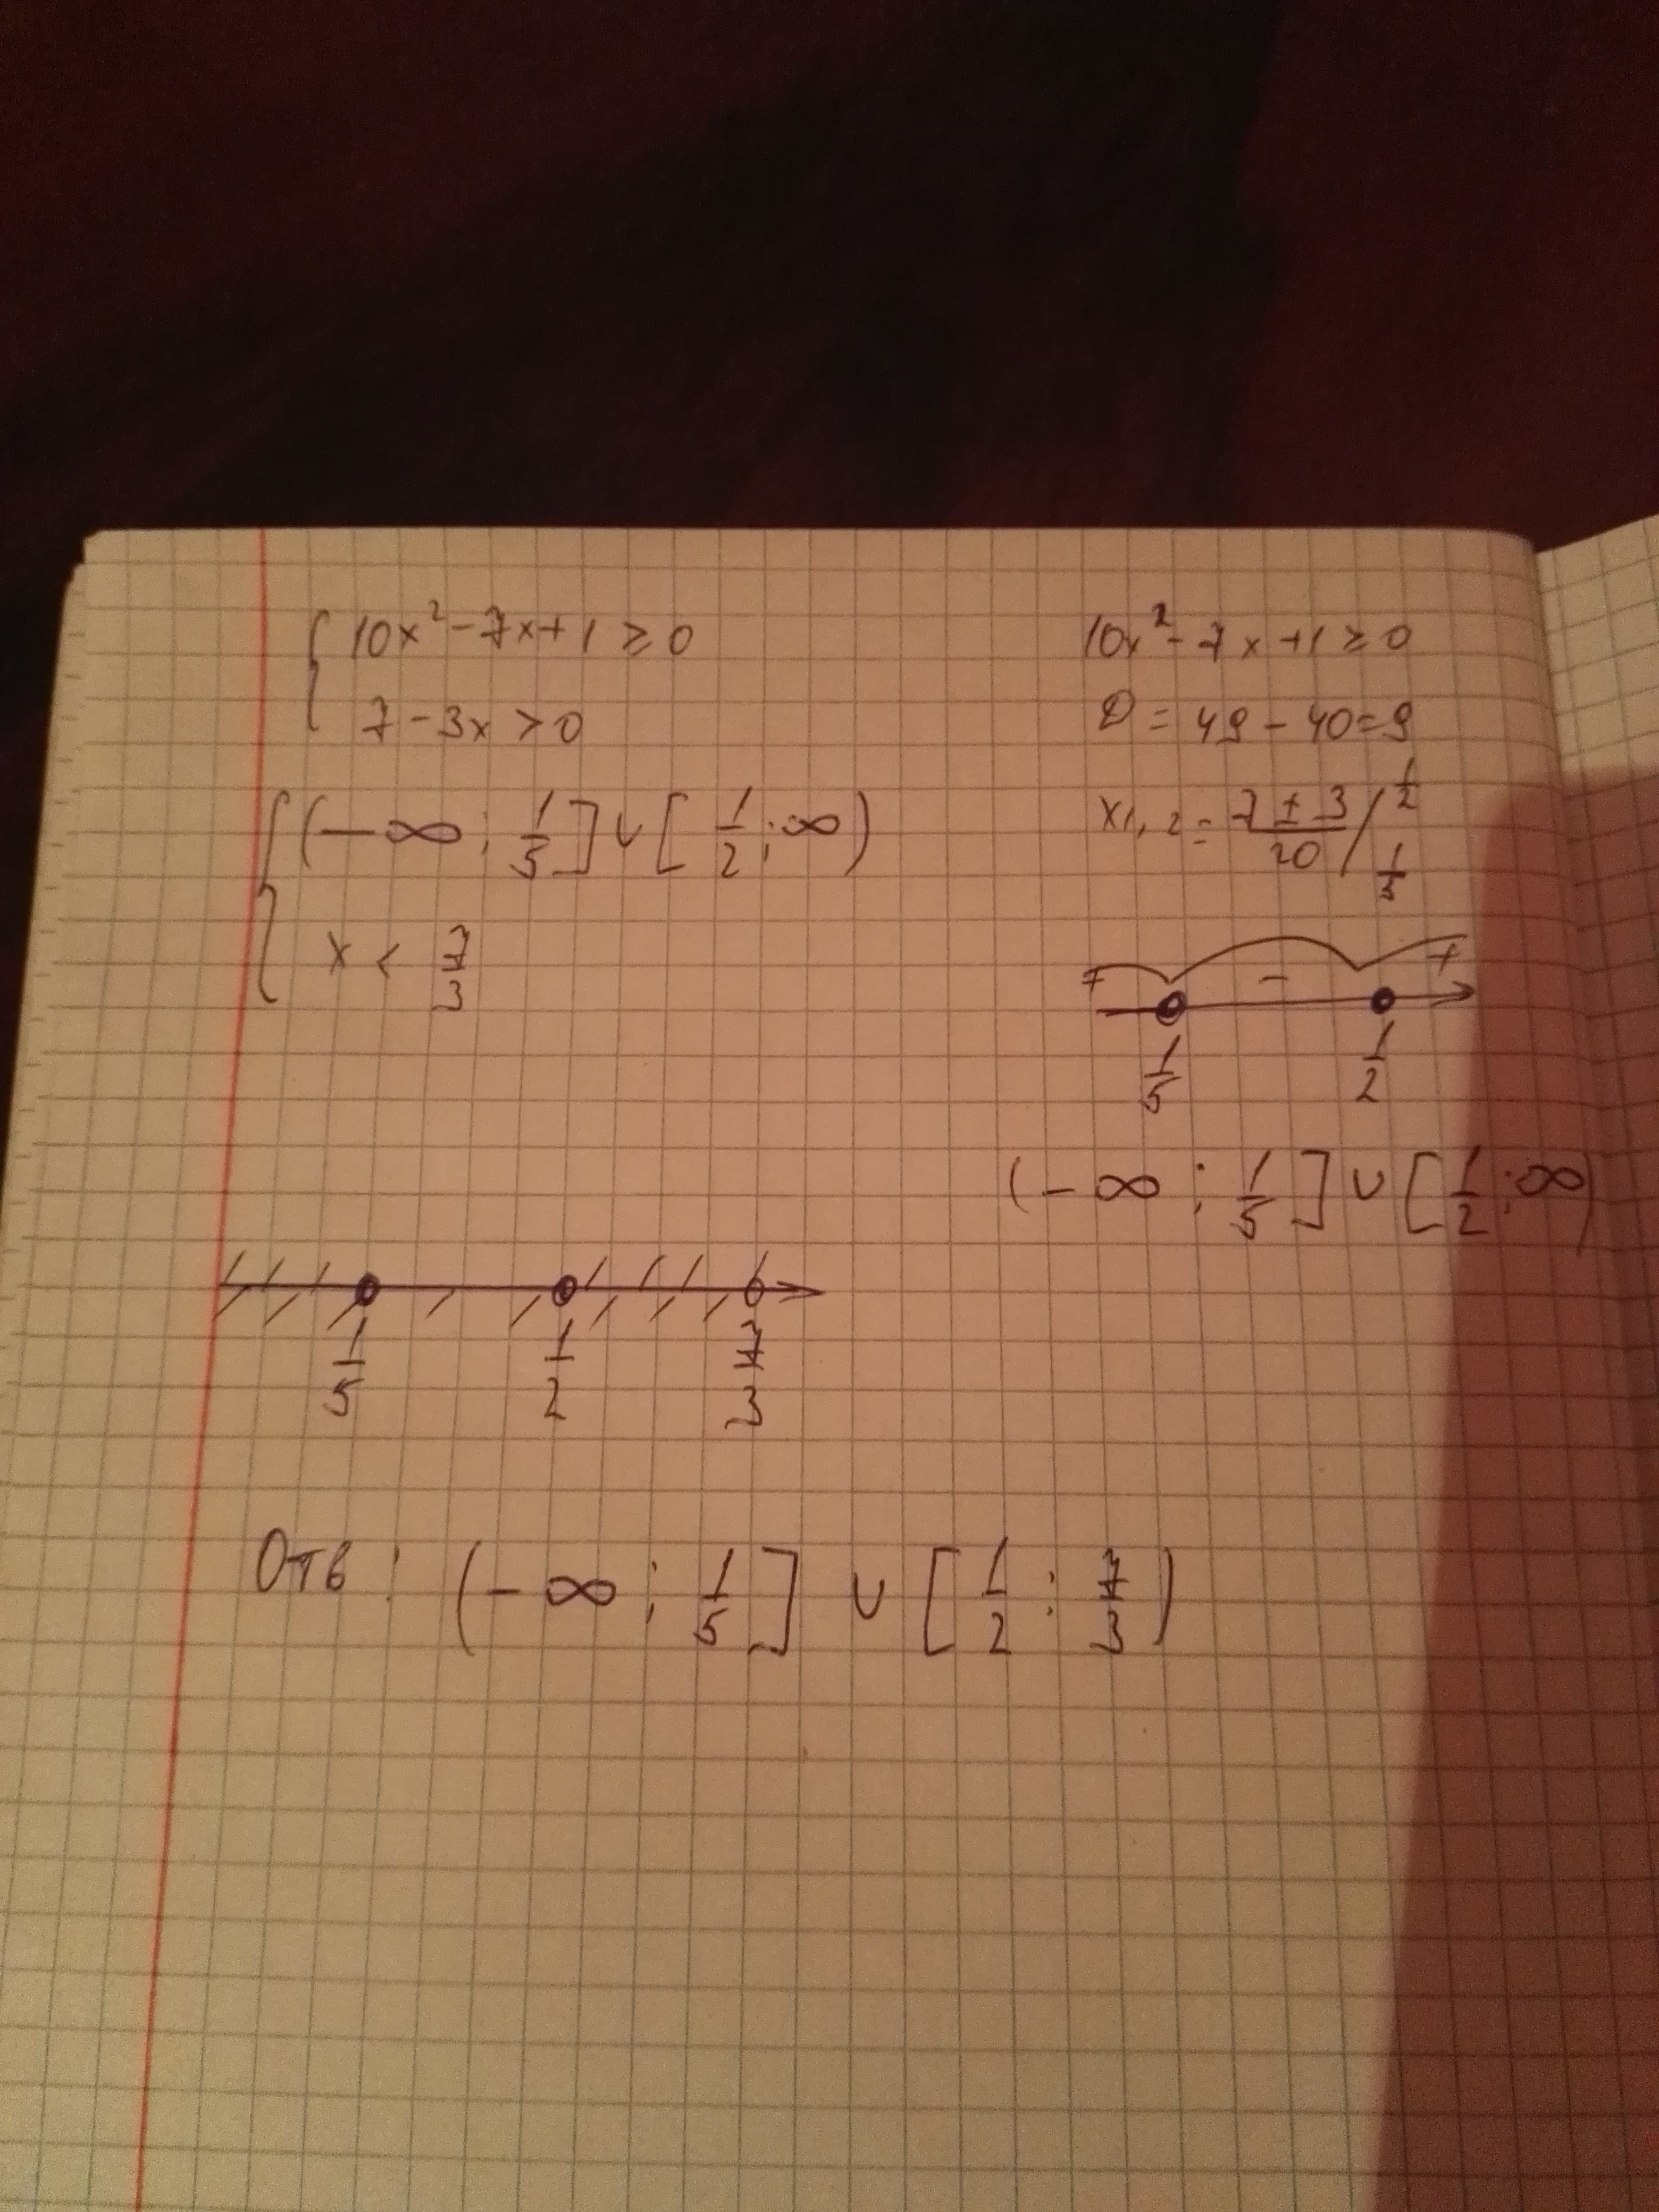 { 10x² - 7x + 1 ≥ 0
7 - 3x > 0
{ (-∞; 1/5] ∪ [1/2; ∞)
x < 7/3
10x² - 7x + 1 ≥ 0
D = 49 - 40 = 9
x1,2 = (7 ± 3)/20 / 1/2
1/5
+ - +
1/5 1/2
(-∞; 1/5] ∪ [1/2; ∞)
1/5 1/2 7/3
Отв: (-∞; 1/5] ∪ [1/2; 7/3)